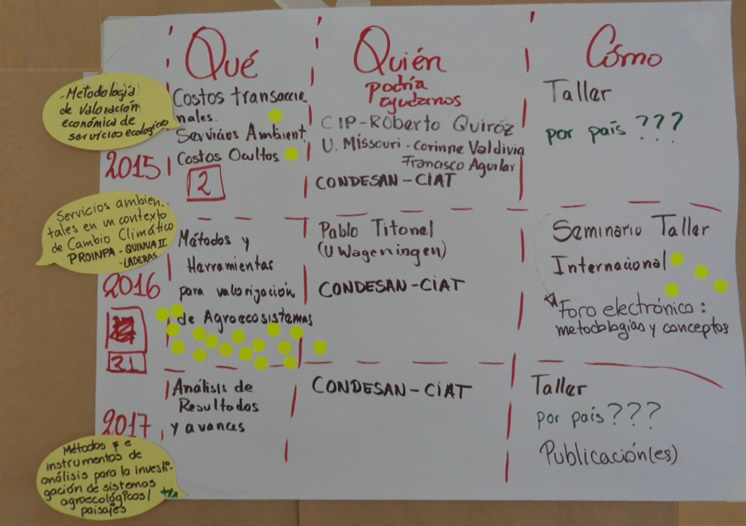 Qué
Quién
podría
ayudarnos
Cómo
-Metodología
de valoración
económica de
servicios ecologicos
2015
Costos transaccio
nales.
Servicios Ambient
Costos Ocultos
2
CIP-Roberto Quiróz
U. Missouri - Corinne Valdivia
Francisco Aguilar
CONDESAN-CIAT
Taller
por país ???
Servicios ambien-
tales en un contexto
de Cambio Climático
PROINPA - QUINUA II
-LADERAS
2016
21
Métodos y
Herramientas
para valorización
de Agroecosistemas
Pablo Titonel
(U Wageningen)
CONDESAN-CIAT
Seminario Taller
Internacional
Foro electrónico:
metodologías y conceptos
2017
Análisis de
Resultados
y avances
CONDESAN-CIAT
Taller
por país???
Publicación(es)
Métodos e
instrumentos de
análisis para la investi-
gación de sistemas
agroecológicos/
paisajes